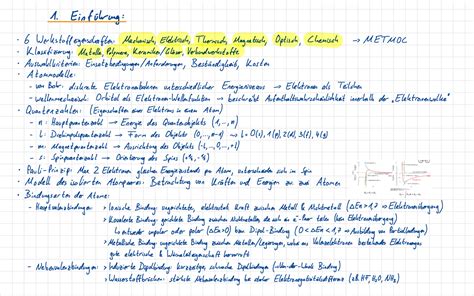 1. Einführung:
• 6 Werkstoffeigenschaften: Mechanisch, Elektrisch, Thermisch, Magnetisch, Optisch, Chemisch → METMOC
• Klassifizierung: Metalle, Polymere, Keramiken/Gläser, Verbundwerkstoffe
• Auswahlkriterien: Einsatzbedingungen/Anforderungen, Beständigkeit, Kosten
• Atommodelle:
- von Bohr: diskrete Elektronenbahnen unterschiedlicher Energieniveaus → Elektronen als Teilchen
- wellenmechanisch: Orbitale als Elektron-Wellenfunktionen → beschreibt Aufenthaltswahrscheinlichkeit innerhalb der "Elektronenwolke"
• Quantenzahlen: (Eigenschaften eines Elektrons in einem Atom)
- n: Hauptquantenzahl → Energie des Quantenobjekts (1,...,n)
- l: Drehimpulsquantenzahl → Form des Objekts (0,...,n-1) → l=0(s), 1(p), 2(d), 3(f), 4(g)
- m: Magnetquantenzahl → Ausrichtung des Objekts (-l,...,0,...,+l)
- s: Spinquantenzahl → Orientierung des Spins (+½, -½)
• Pauli-Prinzip: Max 2 Elektronen gleichen Energiezustand pro Atom, unterscheiden sich im Spin
• Modell des isolierten Atompaares: Betrachtung von Kräften und Energien an zwei Atomen
• Bindungsarten der Atome:
- Hauptvalenzbindungen → Ionische Bindung: ungerichtete, elektrostat. Kraft zwischen Metall & Nichtmetall (ΔEN > 1,7 → Elektronenübergang)
↳ Kovalente Bindung: gerichtete Bindung zwischen Nichtmetallen, die sich ein e⁻-Paar teilen (kein Elektronenübergang)
↳ entweder unpolar oder polar (ΔEN>0) bzw. Dipol-Bindung (0 < ΔEN < 1,7 → Ausbildung von Partialladungen)
↳ Metallische Bindung: ungerichtete Bindung zwischen Metallen/Legierungen, wobei aus Valenzelektronen bestehendes Elektronengas
gute elektrische & Wärmeleitfähigkeit
- Nebenvalenzbindungen: → Induzierte Dipolbindung: kurzzeitige, schwache Dipolbindungen (van-der-Waals Bindung)
↳ Wasserstoffbrücken: stärkste Nebenbindung bei starker Elektronegativitätsdifferenz (z.B. HF, H₂O, NH₃)